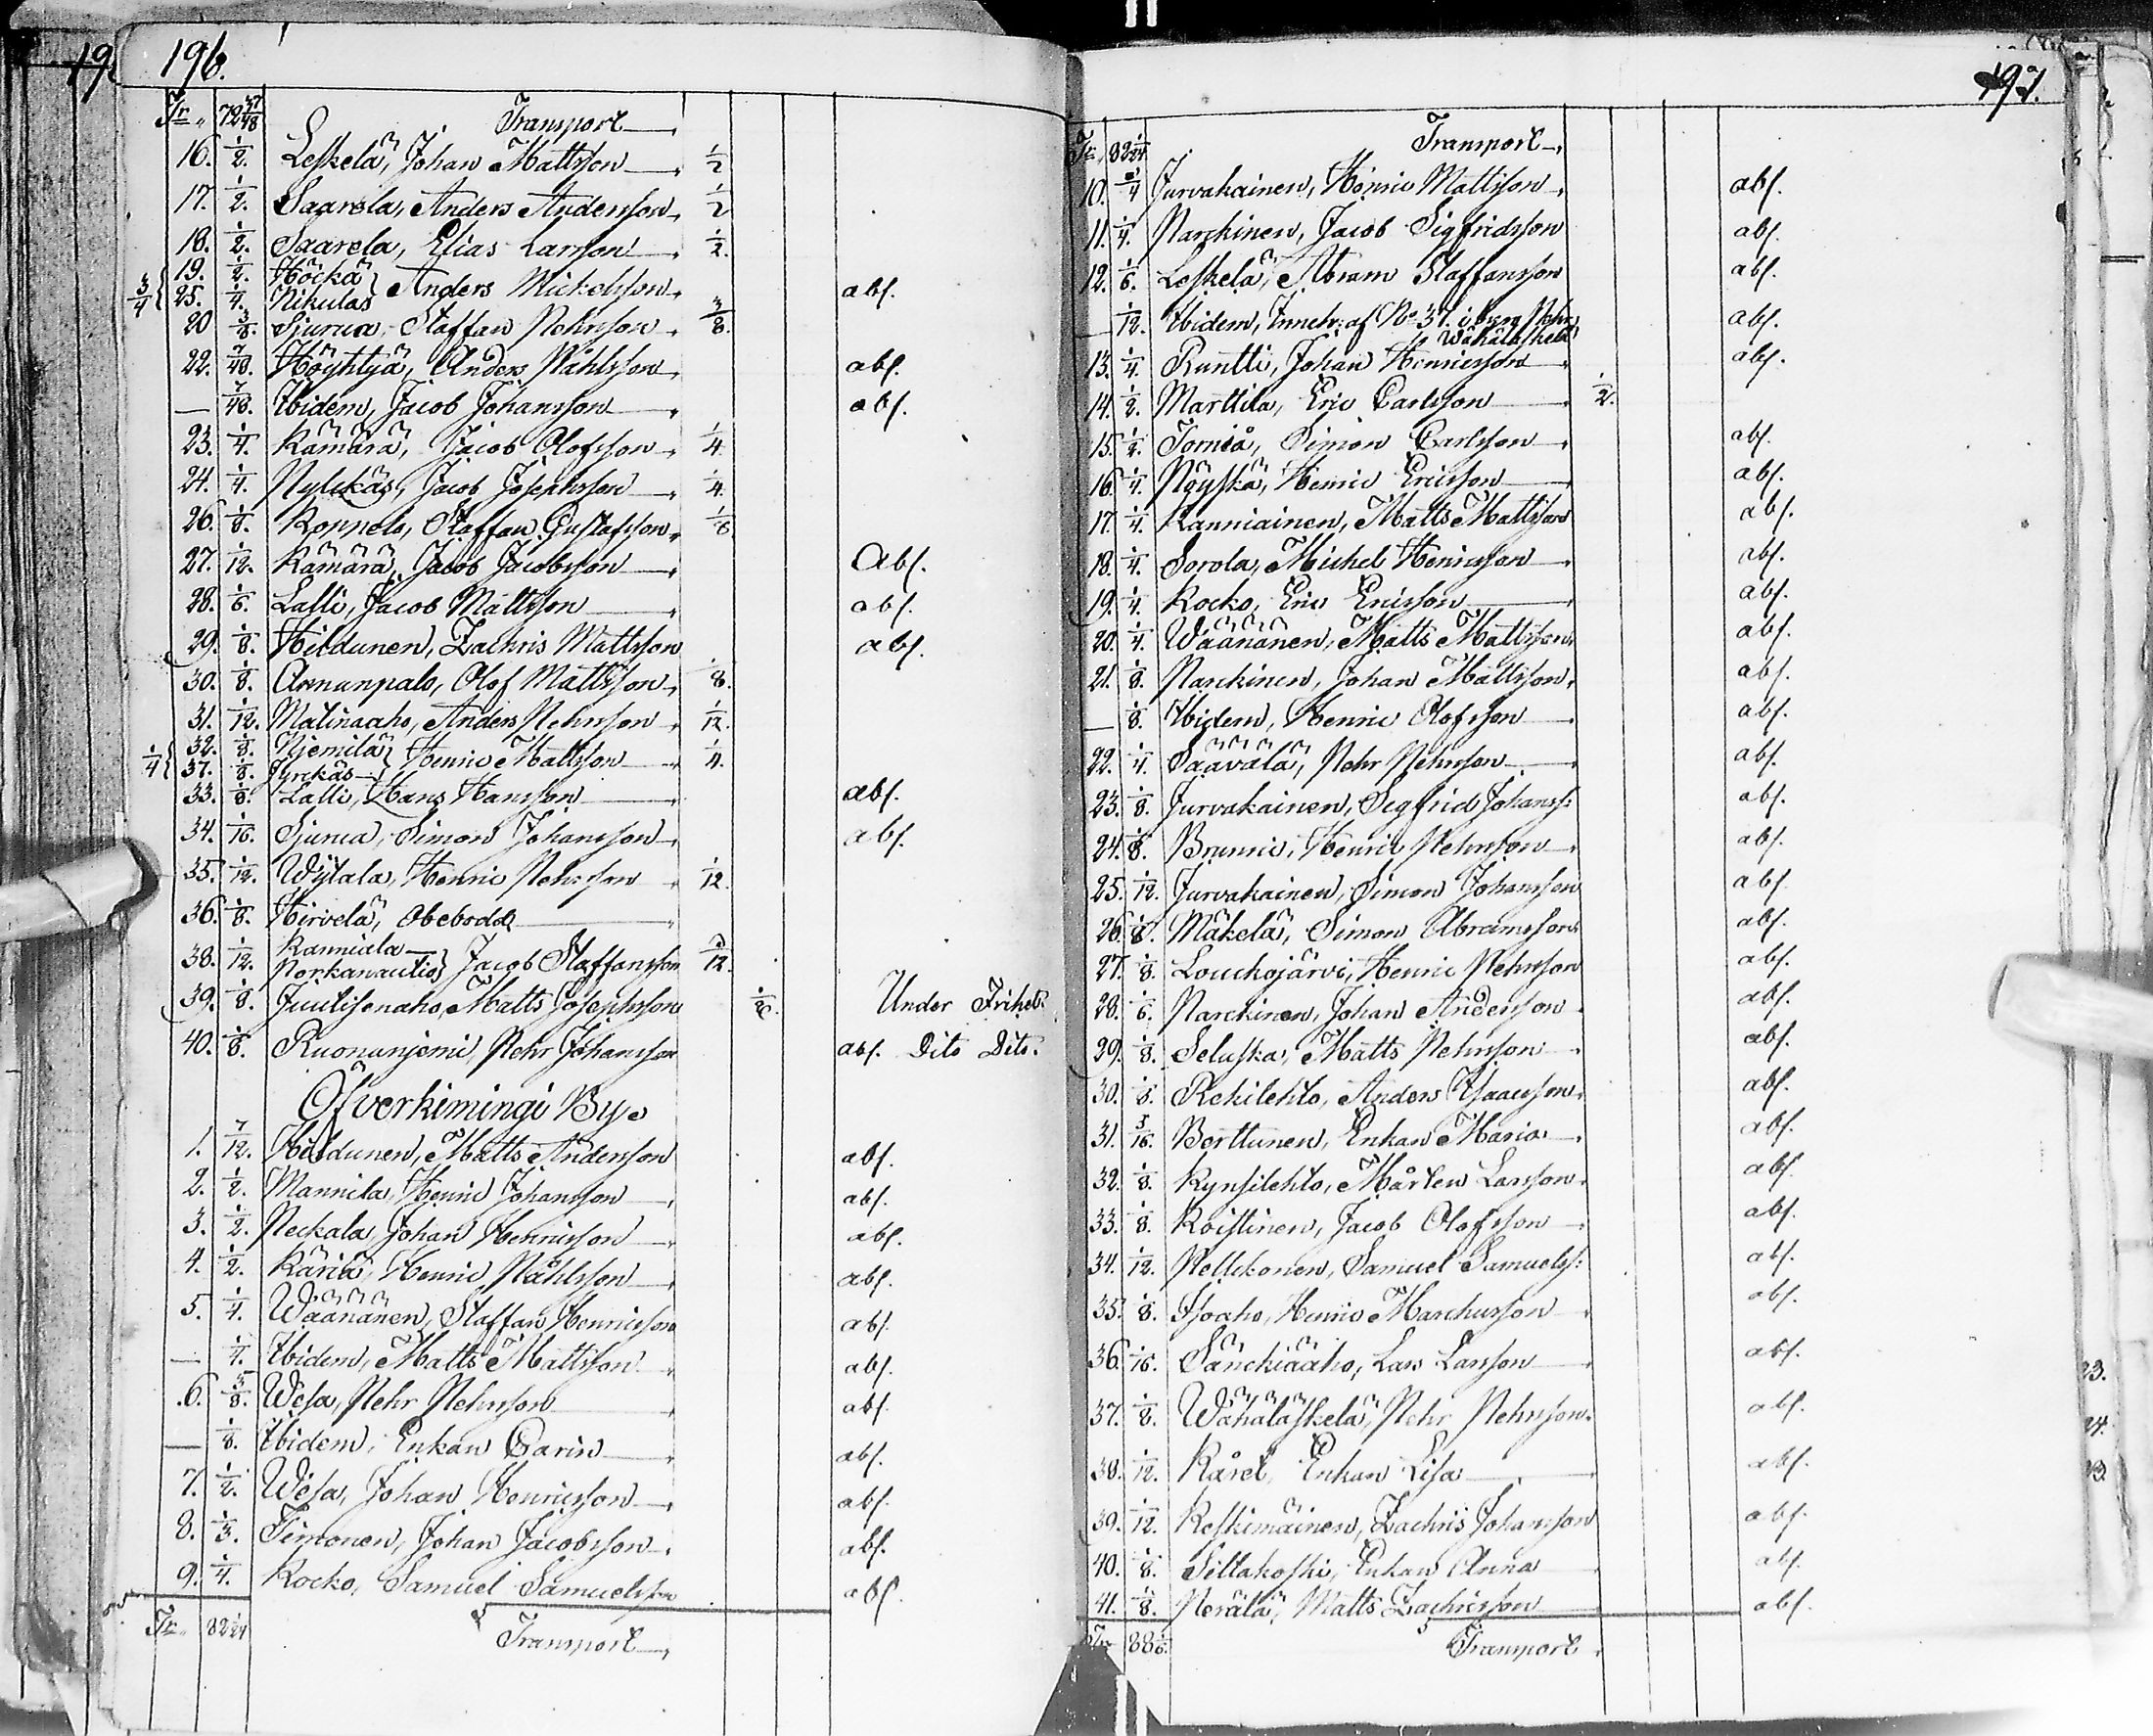 196.
Tr. 72 37/48 Transport
16. 1/2. Leskelä, Johan Mattsson 1/2
17. 1/2. Saarela, Anders Andersson 1/2
18. 1/2. Saarela, Elias Larsson 1/2.
3/4 { 19. 1/2. Höckä } Anders Mickelsson abs.
25. 1/4. Nikulas
20 3/8. Sjurua, Staffan Pehrsson 3/8.
22. 7/48. Höyhtyä, Anders Påhlsson abs.
— 7/48. Ibidem, Jacob Johansson abs.
23. 1/4. Kämärä, Jacob Olofsson 1/4.
24. 1/4. Nylckäs, Jacob Josephsson 1/4.
26. 1/8. Konnels, Staffan Gustafsson 1/8
27. 1/12. Kämärä, Jacob Jacobsson Abs.
28. 1/6. Lalli, Jacob Mattsson abs.
29. 1/8. Hildunen, Zachris Mattsson abs.
30. 1/8. Annunpalo, Olof Mattsson 1/8.
31. 1/12. Matinaaho, Anders Pehrsson 1/12.
1/4 { 32. 1/8. Njemilä } Henric Mattsson 1/4.
37. 1/8. Jyrckäs
33. 1/8. Lalli, Hans Hansson abs.
34. 1/16. Sjurua, Simon Johansson abs.
35. 1/12. Wijtala, Henric Pehrsson 1/12.
36. 1/8. Hirvelä, Obebodd
38. 1/12. Kanniala } Jacob Staffansson 1/12.
Porkanautio
39. 1/8. Juutisenaho, Matts Josephsson 1/8. Under Frihet.
40. 1/8. Ruonanjemi, Pehr Johansson abs. Dito Dito.
Öfverkimingi By
1. 7/12. Hildunen, Matts Andersson abs.
2. 1/2. Mannila, Henric Johansson abs.
3. 1/2. Peckala Johan Henricsson abs.
4. 1/2. Käriä, Henric Påhlsson abs.
5. 1/4. Wäänänen, Staffan Henricsson abs.
— 1/4. Ibidem, Matts Mattsson abs.
6. 5/8. Wesa, Pehr Pehrsson abs.
— 1/8. Ibidem, Enkan Carin abs.
7. 1/2. Wesa, Johan Henricsson abs.
8. 1/3. Timonen, Johan Jacobsson abs.
9. 1/4. Kocko, Samuel Samuelsson abs.
Tr. 82 1/24 Transport
197.
Tr. 82 1/24 Transport
10. 1/4 Jurvakainen, Henric Mattsson abs.
11. 1/4. Parckinen, Jacob Sigfridsson abs.
12. 1/6. Leskelä, Abram Staffansson abs.
— 1/12. Ibidem, Inneh: af No 37. Pehr abs.
Wähäläskelä
13. 1/4. Runtti, Johan Henricsson abs.
14. 1/2. Marttila, Eric Carlsson 1/2.
15. 1/2. Torniå, Simon Carlsson abs.
16. 1/4. Pöyskä, Henric Ericsson abs.
17. 1/4. Kanniainen, Matts Mattsson abs.
18. 1/4. Sorola, Michel Henricsson abs.
19. 1/4. Kocko, Eric Ericsson abs.
20. 1/4. Wäänänen, Matts Mattsson abs.
21. 1/8. Parckinen, Johan Mattsson abs.
— 1/8. Ibidem, Henric Olofsson abs.
22. 1/4. Säävälä, Pehr Pehrsson abs.
23. 1/8. Jurvakainen, Segfrid Johanss: abs.
24. 1/8. Brunnic, Henric Pehrsson abs.
25. 1/12. Jurvakainen, Simon Johansson abs.
26. 1/8. Mäkelä, Simon Abramsson abs.
27. 1/8. Louckojärvi, Henric Pehrsson abs.
28. 1/6. Parckinen, Johan Andersson abs.
29. 1/8. Seluska, Matts Pehrsson abs.
30. 1/8. Rekilehto, Anders Isaacsson abs.
31. 3/16. Berttunen, Enkan Maria abs.
32. 1/8. Kynsilehto, Mårten Larsson abs.
33. 1/8. Koistinen, Jacob Olofsson abs.
34. 1/12. Pellckonen, Samuel Samuelss: abs.
35. 1/8. Isoaho, Henric Marckusson abs.
36. 1/16. Sänckiääho, Lars Larsson abs.
37. 1/8. Wähäläskelä, Pehr Pehrsson abs.
38. 1/12. Kårel, Enkan Lisa abs.
39. 1/12. Keskimäinen, Zachris Johansson abs.
40. 1/8. Siltakoski, Enkan Anna abs.
41. 1/8. Perälä, Matts Zachrisson abs.
Tr. 88 Transport